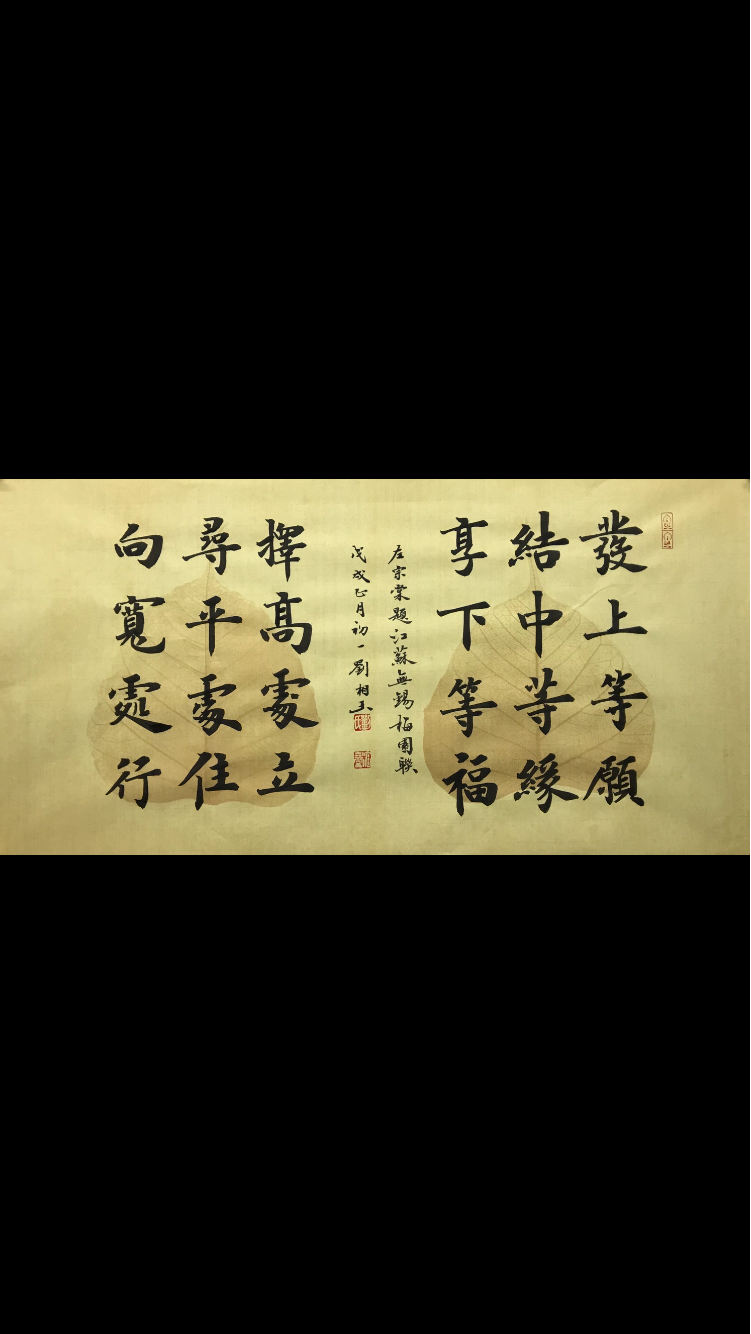 發上等願
結中等緣
享下等福
左宗棠題江蘇無錫梅園聯
戊戌正月初一劉相玉
擇高處立
尋平處住
向寬處行